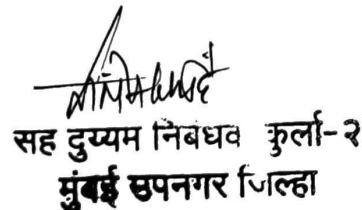 सह दुय्यम निबंधव कुर्ला-२
मुंबई उपनगर जिल्हा